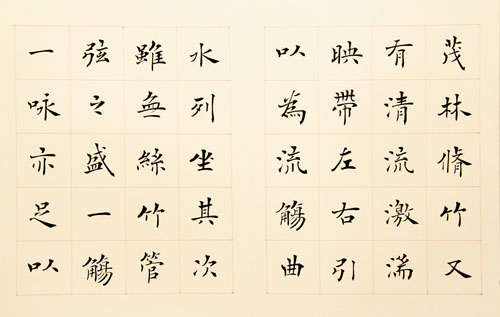 茂林脩竹又
有清流激湍
映帶左右引
以為流觴曲
水列坐其次
雖無絲竹管
弦之盛一觴
一咏亦足以